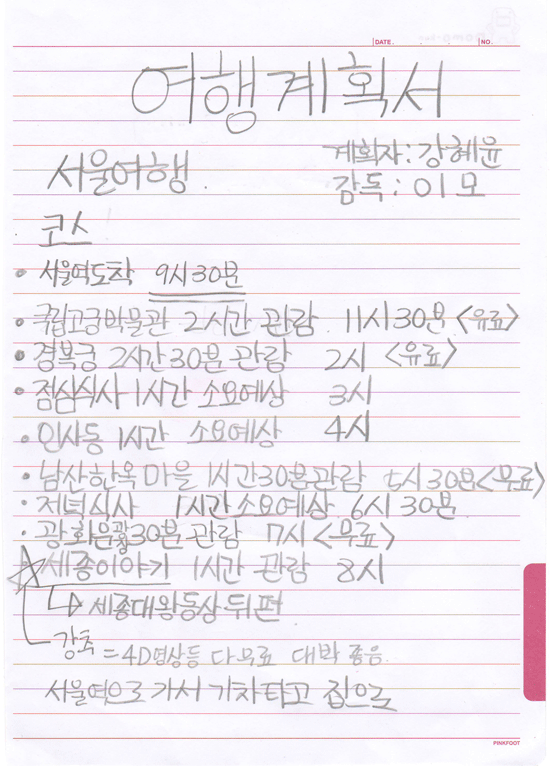 DATE. NO.
여행계획서
계획자: 강혜윤
서울여행
감독: 이모
코스
• 서울역도착 9시30분
• 국립고궁박물관 2시간 관람 11시30분 <유료>
• 경복궁 2시간30분 관람 2시 <유료>
• 점심식사 1시간 소요예상 3시
• 인사동 1시간 소요예상 4시
• 남산한옥마을 1시간30분관람 5시30분<무료>
• 저녁식사 1시간소요예상 6시30분
• 광화문광장30분 관람 7시<무료>
☆세종이야기 1시간 관람 8시
↳세종대왕동상뒤편
강추 = 4D영상등 다무료 대박 좋음
서울역으로 가서 기차타고 집으로
PINKFOOT